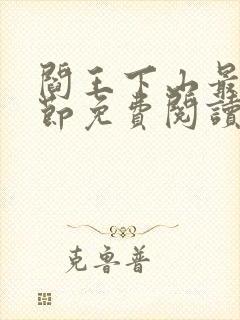 閻王下山最
節免費閱讀
克魯普